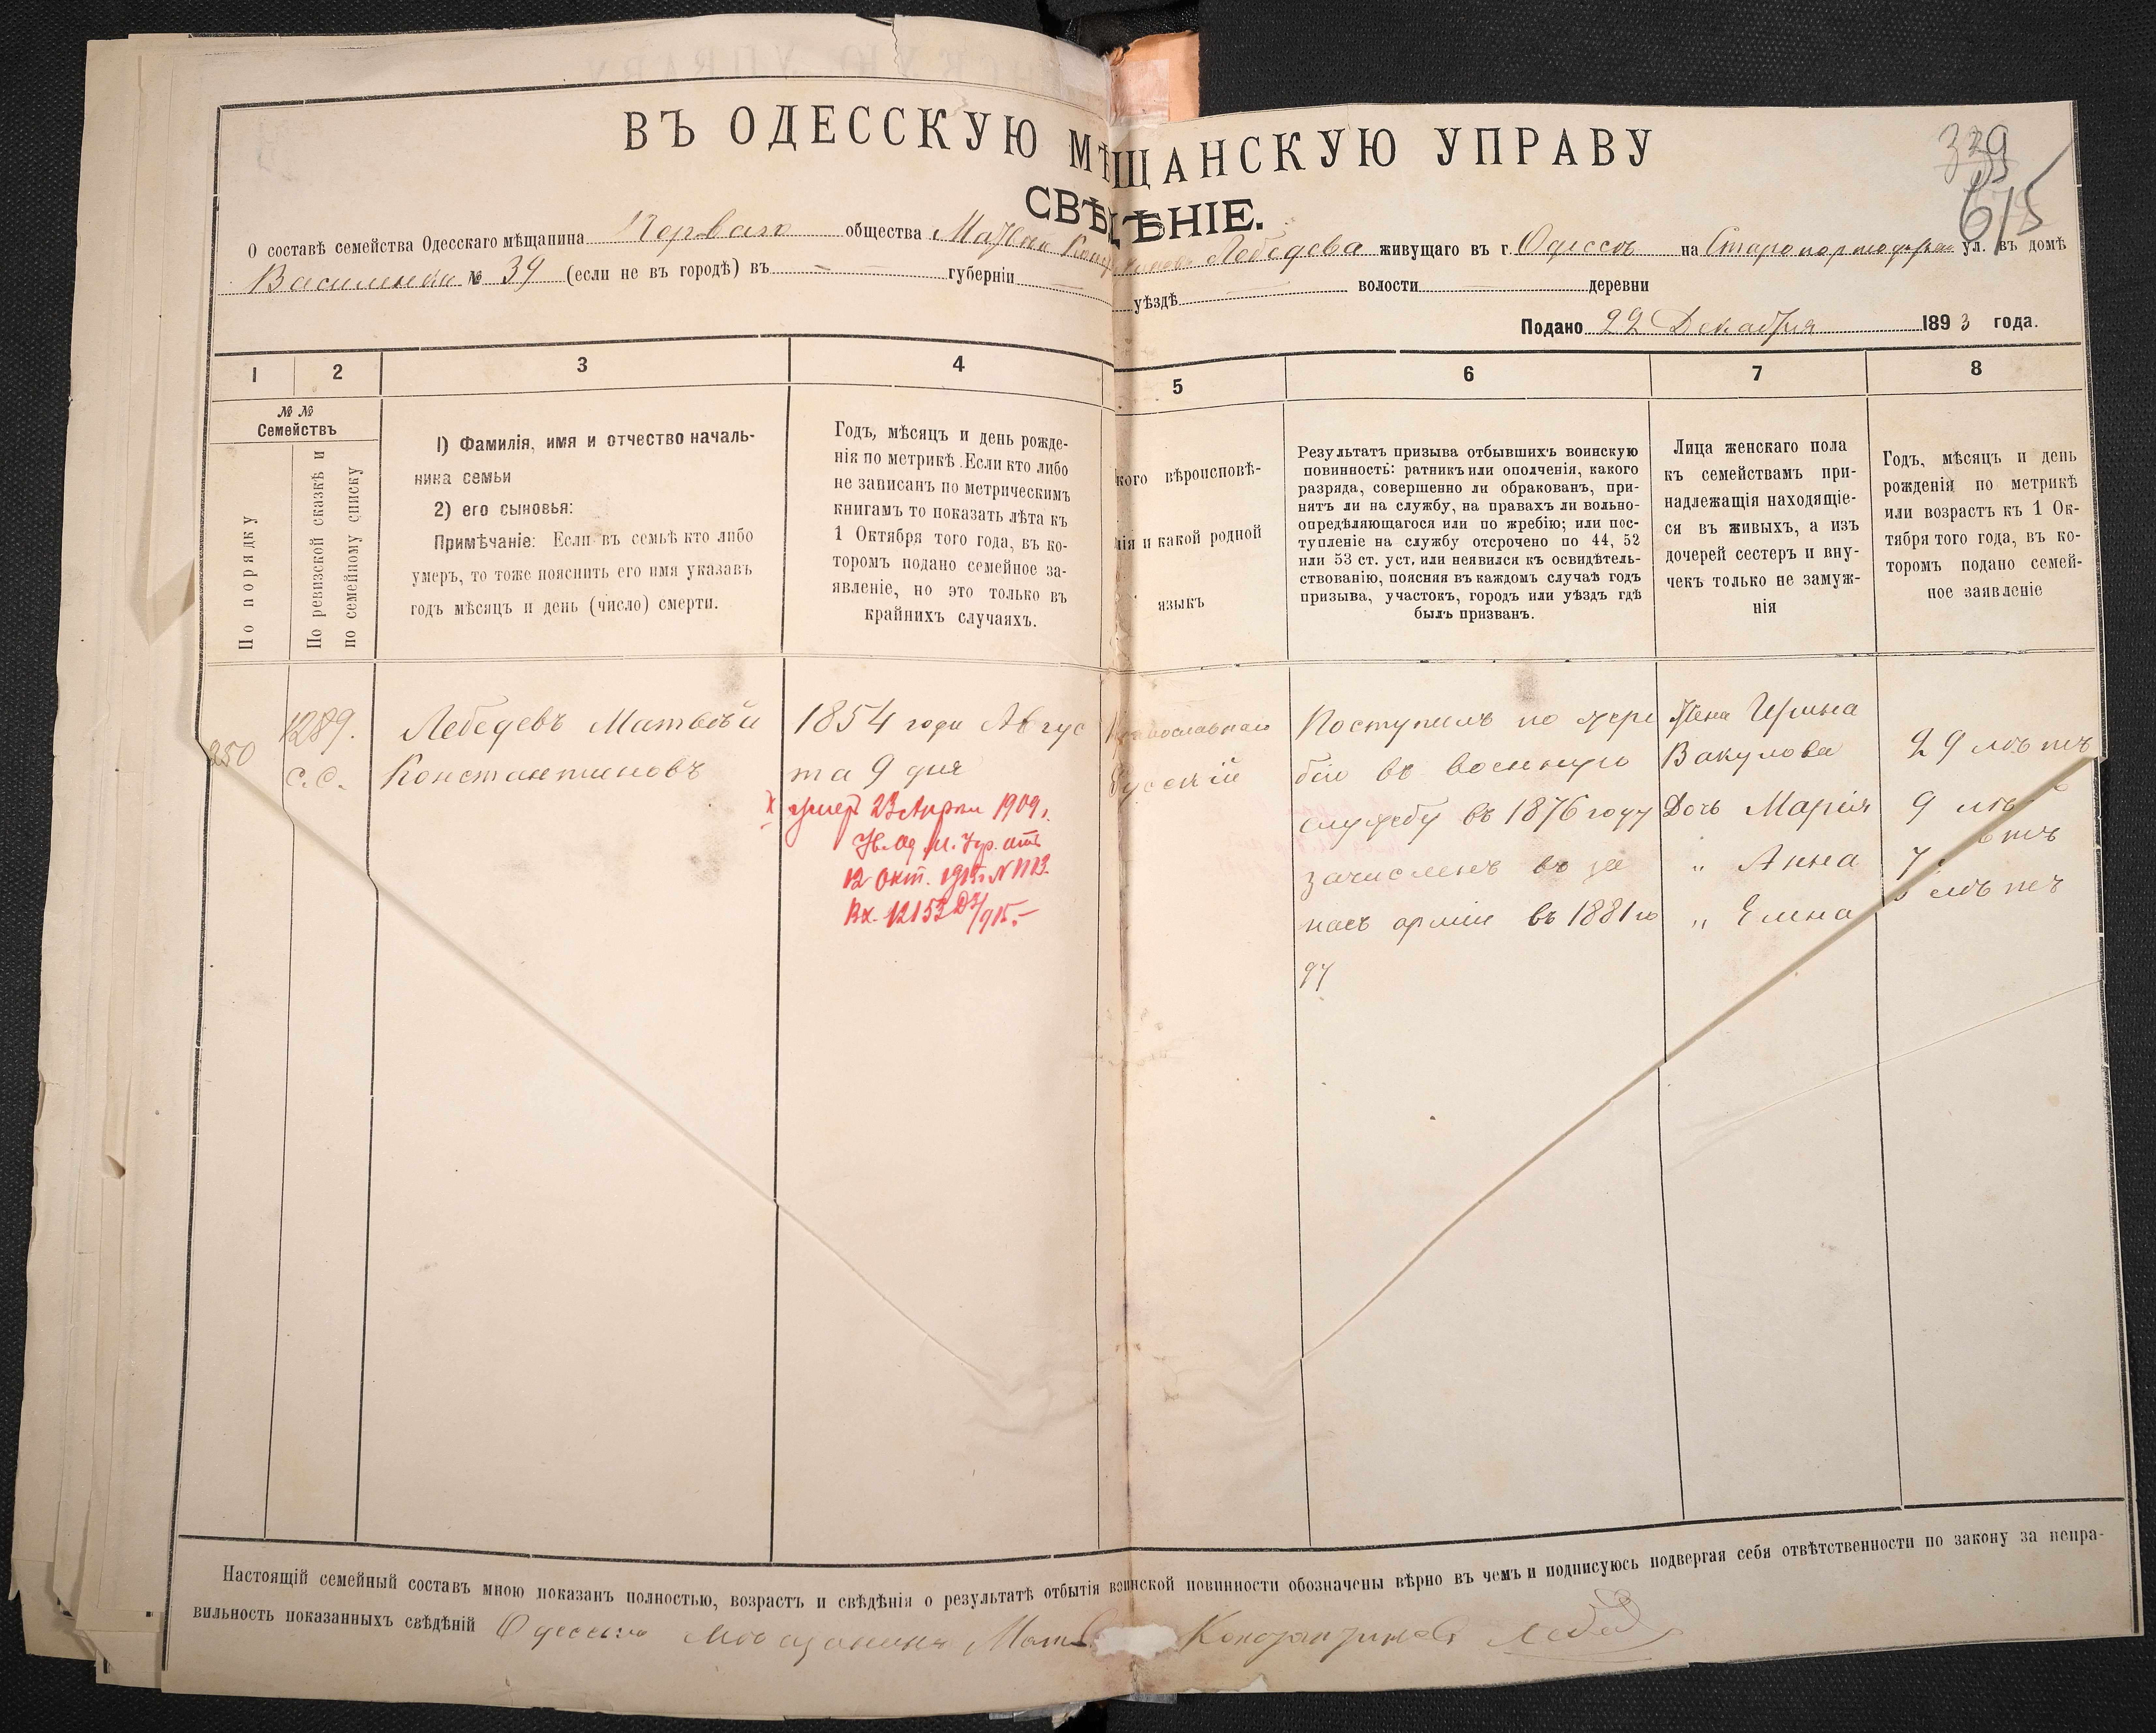 ВЪ ОДЕССКУЮ МѢЩАНСКУЮ УПРАВУ
339
615
СВѢДѢНІЕ.
О составѣ семейства Одесскаго мѣщанина Перваго общества Матвѣя Лебедева живущаго въ г. Одессѣ на Старопортофран ул. въ домѣ
Василенки № 39 (если не въ городѣ) въ губерніи уѣздѣ волости деревни
Подано 22 Декабря 1893 года.
1 2 3 4 5 6 7 8
№ №
Семействъ
По порядку
По ревизской сказкѣ и
по семейному списку
1) Фамилія, имя и отчество началь-
ника семьи
2) его сыновья:
Примѣчаніе: Если въ семьѣ кто либо
умеръ, то тоже пояснить его имя указавъ
годъ мѣсяцъ и день (число) смерти.
Годъ, мѣсяцъ и день рожде-
нія по метрикѣ. Если кто либо
не записанъ по метрическимъ
книгамъ то показать лѣта къ
1 Октября того года, въ ко-
торомъ подано семейное за-
явленіе, но это только въ
крайнихъ случаяхъ.
кого вѣроисповѣ-
нія и какой родной
языкъ
Результатъ призыва отбывшихъ воинскую
повинность: ратникъ или ополченія, какого
разряда, совершенно ли обракованъ, при-
нятъ ли на службу, на правахъ ли вольно-
опредѣляющагося или по жребію; или пос-
тупленіе на службу отсрочено по 44, 52
или 53 ст. уст, или неявился къ освидѣтель-
ствованію, поясняя въ каждомъ случаѣ годъ
призыва, участокъ, городъ или уѣздъ гдѣ
былъ призванъ.
Лица женскаго пола
къ семействамъ при-
надлежащія находящіе-
ся въ живыхъ, а изъ
дочерей сестеръ и вну-
чекъ только не замуж-
нія
Годъ, мѣсяцъ и день
рожденія по метрикѣ
или возрастъ къ 1 Ок-
тября того года, въ ко-
торомъ подано семей-
ное заявленіе
250
1289.
с. с.
Лебедевъ Матвѣй
Константиновъ
1854 года Авгус
та 9 дня
умеръ 23 Апрѣля 1909 г.
12 Окт. 1915 г. N
Вх. 12153
Православнаго
Русскій
Поступилъ по жере
бію въ военную
службу въ 1876 году
зачисленъ въ за
пасъ арміи въ 1881 го
ду
Жена Ирина
Вакулова
Дочь Марія
„ Анна
„ Елена
29 лѣтъ
9 лѣ
7 ѣтъ
лѣтъ
Настоящій семейный составъ мною показанъ полностью, возрастъ и свѣдѣнія о результатѣ отбытія воинской повинности обозначены вѣрно въ чемъ и подписуюсь подвергая себя отвѣтственности по закону за непра-
вильность показанныхъ свѣдѣній Одесскій мѣщанинъ Матв Константиновъ Лебед